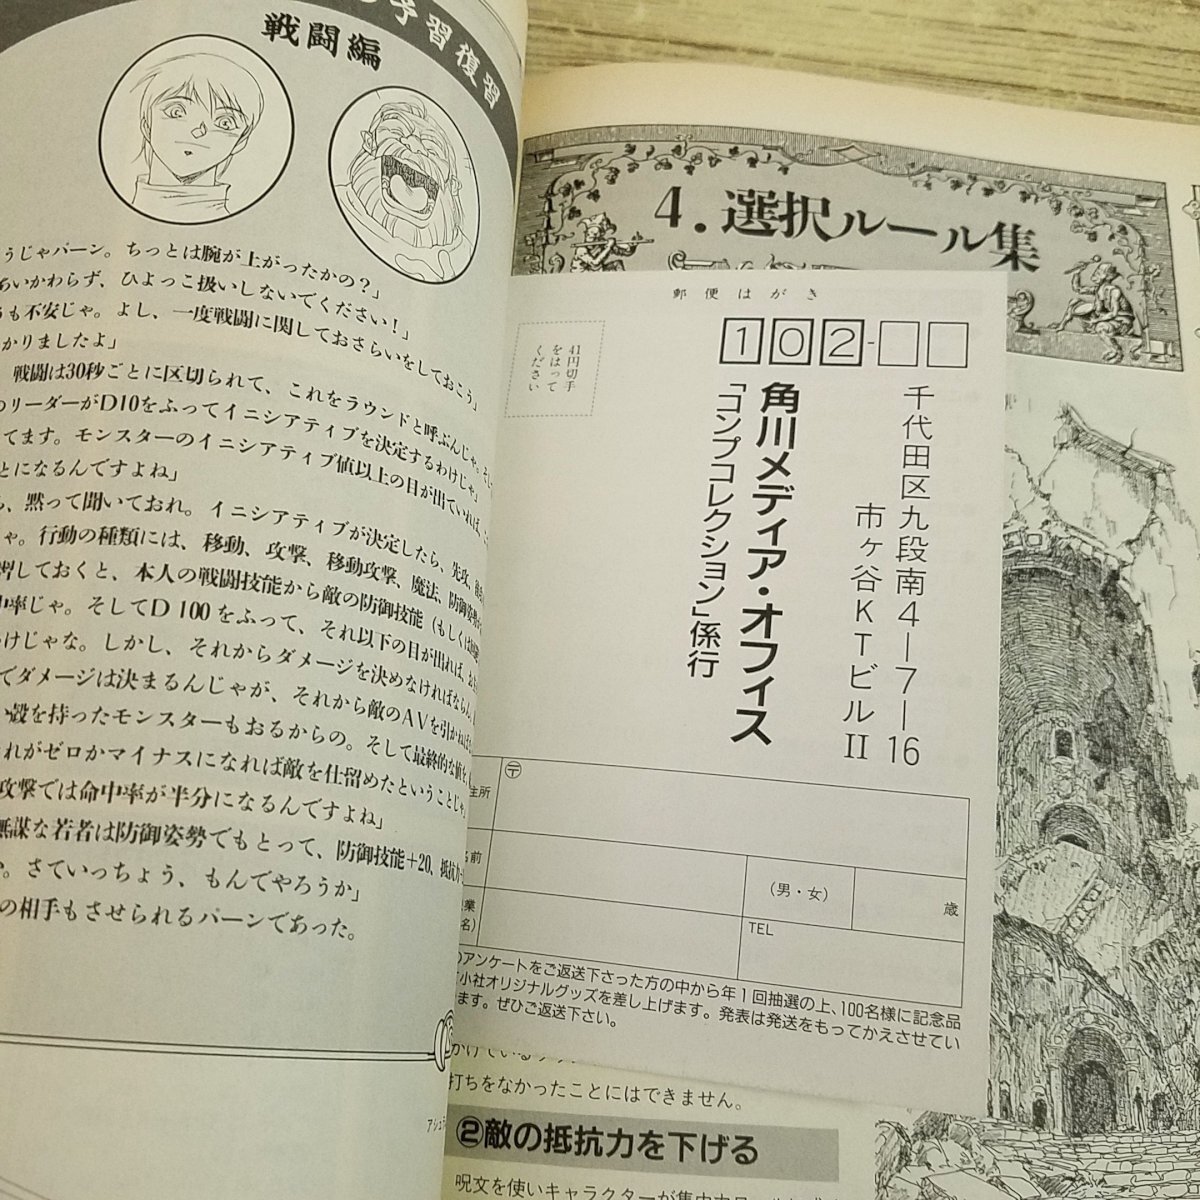 予習復習
戦闘編
うじゃパーン。ちっとは腕が上がったかの？」
あいかわらず、ひよっこ扱いしないでください！」
も不安じゃ。よし、一度戦闘に関しておさらいをしておこう」
かりましたよ」
戦闘は30秒ごとに区切られて、これをラウンドと呼ぶんじゃ。そ
のリーダーがD10をふってイニシアティブを決定するわけじゃ」
てます。モンスターのイニシアティブ値以上の目が出ていれば、
とになるんですよね」
、黙って聞いておれ。イニシアティブが決定したら、先攻、
ゃ。行動の種類には、移動、攻撃、移動攻撃、魔法、防御姿勢
習しておくと、本人の戦闘技能から敵の防御技能（もしくは
中率じゃ。そしてD100をふって、それ以下の目が出れば、
けじゃな。しかし、それからダメージを決めなければならん。
てダメージは決まるんじゃが、それから敵のAVを引かねば
い殻を持ったモンスターもおるからの。そして最終的な値を、
れがゼロかマイナスになれば敵を仕留めたということじゃ」
攻撃では命中率が半分になるんですよね」
無謀な若者は防御姿勢でもとって、防御技能+20、抵抗力
。さていっちょう、もんでやろうか」
の相手もさせられるパーンであった。
4.選択ルール集
郵便はがき
102-
41円切手
をはって
ください
千代田区九段南4―7―16
市ヶ谷KTビルⅡ
角川メディア・オフィス
「コンプコレクション」係行
住所
〒
名前
（男・女）
歳
業
名）
TEL
のアンケートをご返送下さった方の中から年1回抽選の上、100名様に記念品
小社オリジナルグッズを差し上げます。発表は発送をもってかえさせてい
ます。ぜひご返送下さい。
打ちをなかったことにはできません。
②敵の抵抗力を下げる
呪文を使いキャラクターが集中